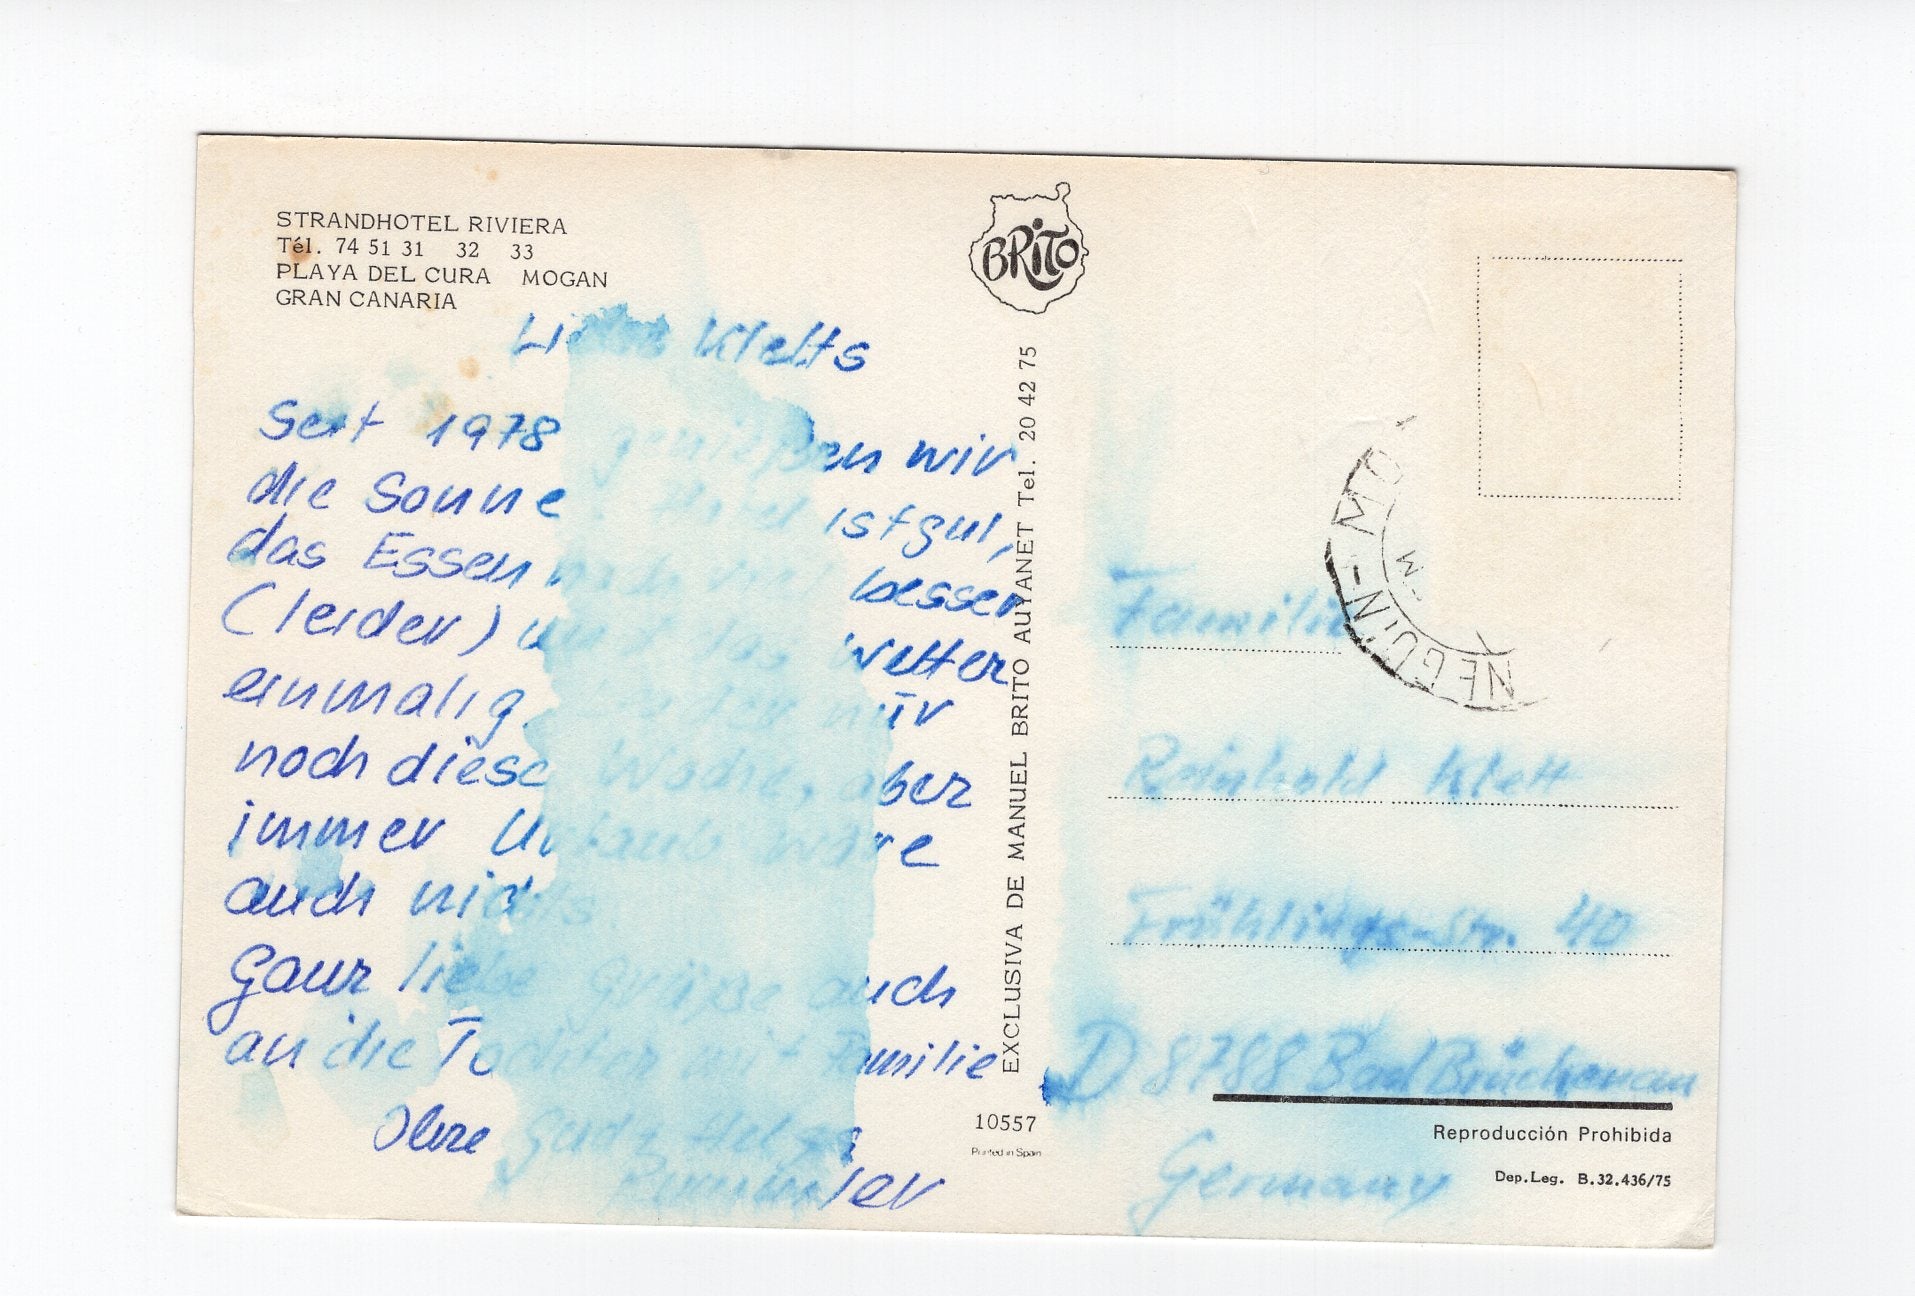 STRANDHOTEL RIVIERA
Tél. 74 51 31 32 33
PLAYA DEL CURA MOGAN
GRAN CANARIA
Liebe Kletts
Seit 1978 genießen wir
die Sonne. Hotel ist gut,
das Essen noch besser
(leider) und das Wetter
einmalig. nur
noch diese Woche, aber
immer Urlaub wäre
auch nichts.
Ganz liebe Grüße auch
an die Tochter mit Familie
Ihre
BRITO
EXCLUSIVA DE MANUEL BRITO AUYANET Tel. 20 42 75
10557
Printed in Spain
NEGUIN-MO
Familie
Reinhold Klett
Frühlings-Str. 40
D 8788 Bad Brückenau
Germany
Reproducción Prohibida
Dep.Leg. B.32.436/75